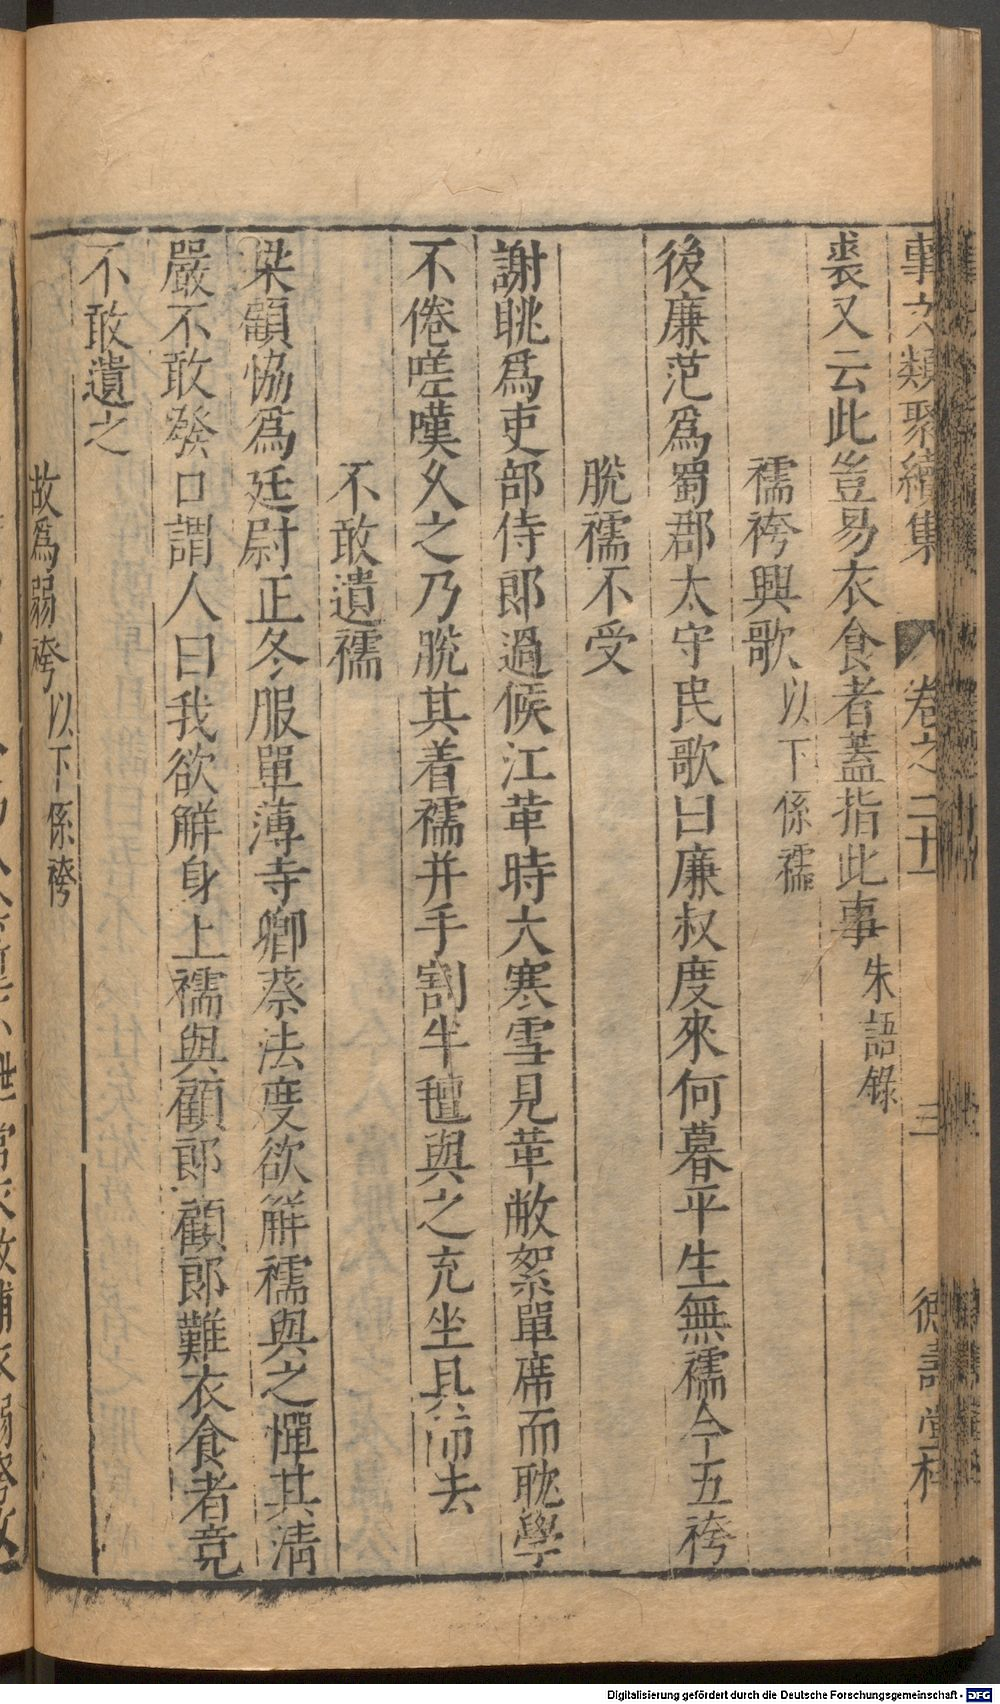 事文類聚續集 卷之二十 三 德壽堂梓
裘又云此豈易衣食者蓋指此事 朱語錄
襦袴興歌 以下係襦
後廉范爲蜀郡太守民歌曰廉叔度來何暮平生無襦今五袴
脫襦不受
謝眺爲吏部侍郎過候江革時大寒雪見革敝絮單席而耽學
不倦嗟嘆久之乃脫其着襦并手割半氊與之充坐具而去
不敢遺襦
梁顧協爲廷尉正冬服單薄寺卿蔡法度欲解襦與之憚其淸
嚴不敢發口謂人曰我欲解身上襦與顧郎顧郎難衣食者竟
不敢遺之
故爲弱袴 以下係袴
Digitalisierung gefördert durch die Deutsche Forschungsgemeinschaft - DFG